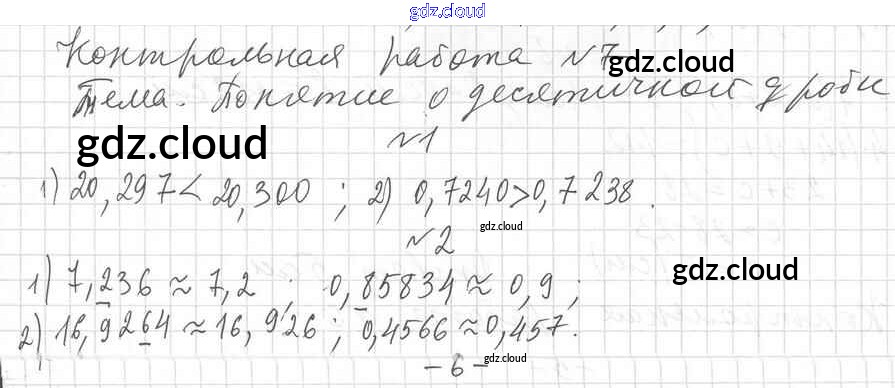 gdz.cloud
Контрольная работа №7
gdz.cloud
Тема. Понятие о десятичной дроби
gdz.cloud
№1
1) 20,297 < 20,300 ; 2) 0,7240 > 0,7238.
gdz.cloud
№2
gdz.cloud
1) 7,236 ≈ 7,2 ; 0,85834 ≈ 0,9 ;
2) 16,9264 ≈ 16,926 ; 0,4566 ≈ 0,457.
gdz.cloud
- 6 -